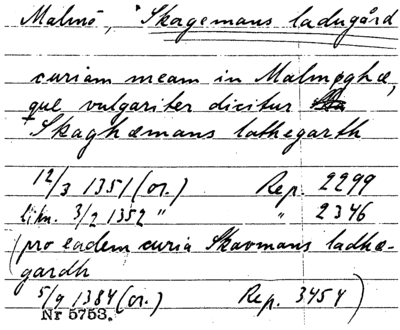 Malmö, Skagemans ladugård
curiam meam in Malmøghæ,
que vulgariter dicitur
Skaghæmans lathegarth
12/3 1351 (or.) Rep. 2299
likn. 3/2 1352 " " 2346
(pro eadem curia Skavmans ladhæ-
gardh
5/9 1384 (or.) Rep. 3454)
Nr 5753.